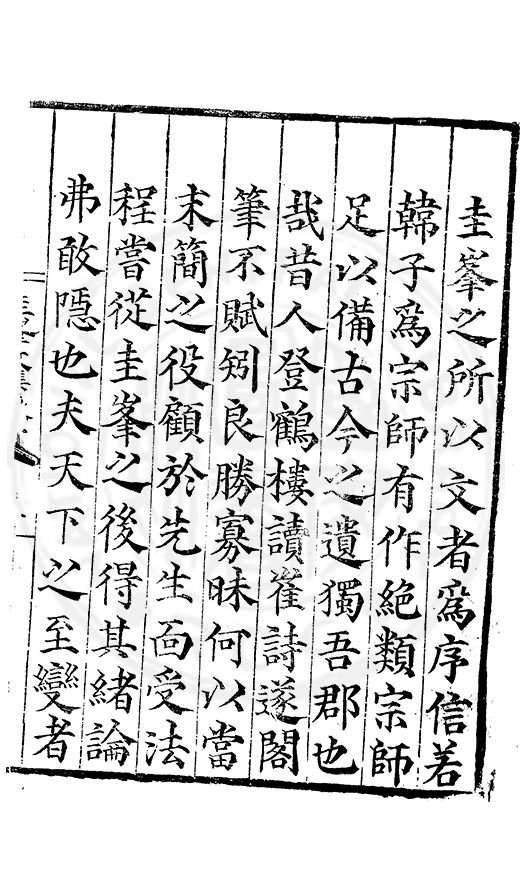 圭峯之所以文者爲序信若
韓子爲宗師有作絶類宗師
足以備古今之遺獨吾郡也
哉昔人登鶴樓讀崔詩遂閣
筆不賦矧良勝寡昧何以當
末簡之役顧於先生面受法
程嘗從圭峯之後得其緒論
弗敢隱也夫天下之至變者